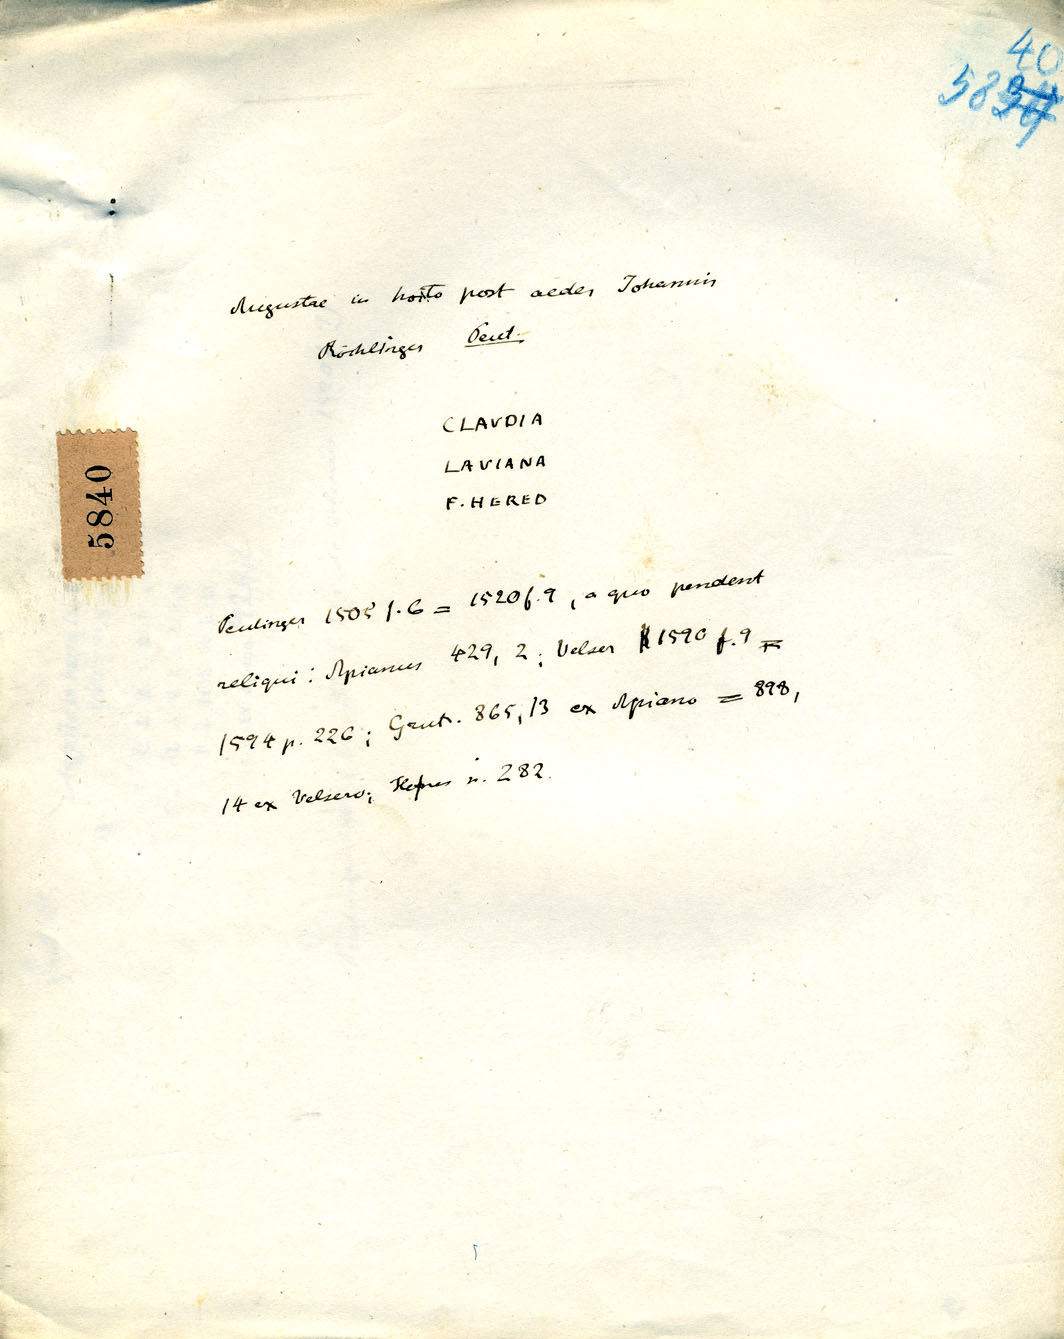 40
5834
Augustae in horto post aedes Iohannis
Röchlinger Peut.
CLAVDIA
LAVIANA
F. HERED
5840
Peutinger 1505 f. 6 = 1520 f. 9, a quo pendent
reliqui: Apianus 429, 2; Velser 1590 f. 9 =
1594 p. 226; Grut. 865, 13 ex Apiano = 898,
14 ex Velsero; Hefner n. 282.